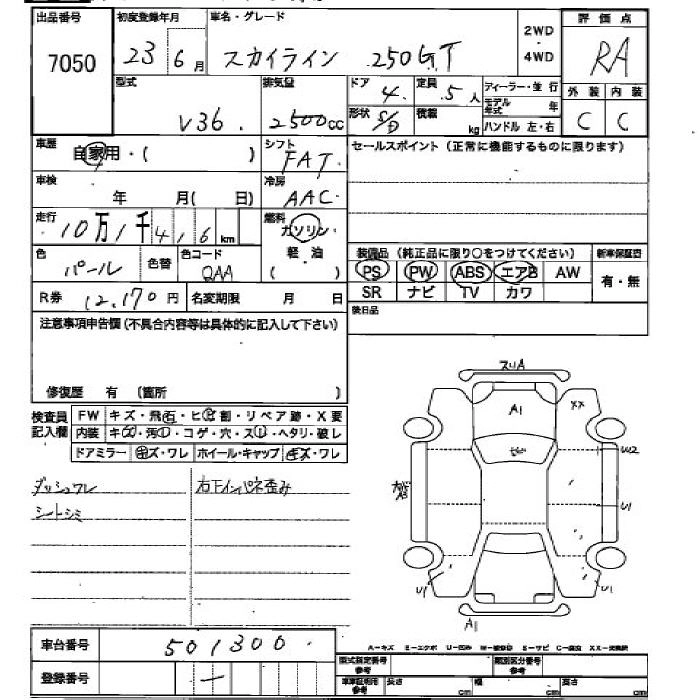 出品番号 初度登録年月 車名・グレード 2WD・4WD 評価点
7050 23 6月 スカイライン 250GT RA
型式 排気量 ドア 定員 ディーラー・並行 外装 内装
V36 2500cc 4 5人 モデル年式 年 C C
形状 S/D 積載 kg ハンドル 左・右
車歴 自家用・( ) シフト FAT セールスポイント(正常に機能するものに限ります)
車検 年 月( 日) 冷房 AAC
走行 10万1千416km 燃料 ガソリン・軽・油 ( )
色 パール 色替 色コード QAA
装備品(純正品に限り○をつけてください) 新車保証書
PS PW ABS エアB AW 有・無
SR ナビ TV カワ
R券 12,170円 名変期限 月 日 後日品
注意事項申告欄(不具合内容等は具体的に記入して下さい)
修復歴 有 (箇所 )
検査員記入欄 FW キズ・飛石・ヒビ割・リペア跡・X要
内装 キズ・汚レ・コゲ・穴・スレ・ヘタリ・破レ
ドアミラー キズ・ワレ ホイール・キャップ キズ・ワレ
ダッシュワレ 右下インパネ歪み
シートシミ
スリA
A1 XX
W2
U1
U1 U1
A1
A-キズ E-エクボ U-凹み W-補修跡 S-サビ C-腐食 XX-交換済
車台番号 501300
型式指定番号 参考 類別区分番号 参考
登録番号 ー 車車証明用 参考 長さ cm 幅 cm 高さ cm